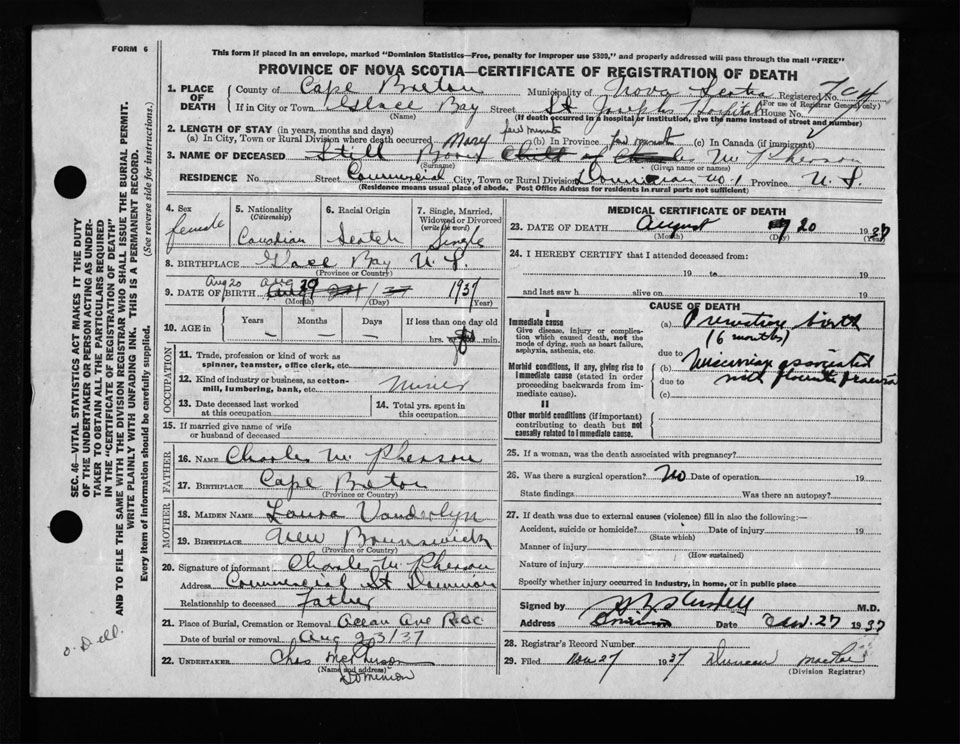 FORM 6
This form if placed in an envelope, marked "Dominion Statistics—Free, penalty for improper use $300," and properly addressed will pass through the mail "FREE"
PROVINCE OF NOVA SCOTIA—CERTIFICATE OF REGISTRATION OF DEATH
1. PLACE OF DEATH
County of Cape Breton Municipality of Nova Scotia Registered No.
(For use of Registrar General only)
If in City or Town Glace Bay Street St Joseph's Hospital House No.
(Name) (If death occurred in a hospital or institution, give the name instead of street and number)
2. LENGTH OF STAY (in years, months and days)
(a) In City, Town or Rural Division where death occurred few minutes (b) In Province few minutes (c) In Canada (if immigrant)
3. NAME OF DECEASED Still Born Mary Child of Charles McPherson
(Surname) (Given name or names)
RESIDENCE No. Street Commercial City, Town or Rural Division Dominion No. 1 Province N. S.
(Residence means usual place of abode. Post Office Address for residents in rural parts not sufficient)
4. Sex
female
5. Nationality
(Citizenship)
Canadian
6. Racial Origin
Scotch
7. Single, Married, Widowed or Divorced
(write the word)
Single
8. BIRTHPLACE Glace Bay N. S.
(Province or Country)
9. DATE OF BIRTH Aug 20 1937
(Month) (Day) (Year)
10. AGE in
Years Months Days If less than one day old
hrs. or min.
OCCUPATION
11. Trade, profession or kind of work as spinner, teamster, office clerk, etc.
12. Kind of industry or business, as cotton-mill, lumbering, bank, etc. Miner
13. Date deceased last worked at this occupation
14. Total yrs. spent in this occupation
15. If married give name of wife or husband of deceased
FATHER
16. NAME Charles McPherson
17. BIRTHPLACE Cape Breton
(Province or Country)
MOTHER
18. MAIDEN NAME Laura Vanderlyn
19. BIRTHPLACE New Brunswick
(Province or Country)
20. Signature of informant Charles McPherson
Address Commercial St Dominion
Relationship to deceased Father
21. Place of Burial, Cremation or Removal Ocean Ave
Date of burial or removal Aug 23/37
22. UNDERTAKER Chas McPherson
(Name and address)
Dominion
MEDICAL CERTIFICATE OF DEATH
23. DATE OF DEATH August 20 1937
(Month) (Day) (Year)
24. I HEREBY CERTIFY that I attended deceased from:
19 to 19
and last saw h alive on 19
CAUSE OF DEATH
I
Immediate cause
Give disease, injury or complication which caused death, not the mode of dying, such as heart failure, asphyxia, asthenia, etc.
(a) Premature birth
(6 months)
due to
Morbid conditions, if any, giving rise to immediate cause (stated in order proceeding backwards from immediate cause).
(b) associated
due to with placenta praevia
(c)
II
Other morbid conditions (if important) contributing to death but not causally related to immediate cause.
25. If a woman, was the death associated with pregnancy?
26. Was there a surgical operation? No Date of operation 19
State findings Was there an autopsy?
27. If death was due to external causes (violence) fill in also the following:—
Accident, suicide or homicide? Date of injury 19
(State which)
Manner of injury
(How sustained)
Nature of injury
Specify whether injury occurred in industry, in home, or in public place
Signed by M.D.
Address Dominion Date 27 1937
28. Registrar's Record Number
29. Filed Nov 27 1937 Duncan MacRae
(Division Registrar)
SEC. 46—VITAL STATISTICS ACT MAKES IT THE DUTY
OF THE UNDERTAKER OR PERSON ACTING AS UNDER-
TAKER TO OBTAIN ALL THE PARTICULARS REQUIRED
IN THE "CERTIFICATE OF REGISTRATION OF DEATH"
AND TO FILE THE SAME WITH THE DIVISION REGISTRAR WHO SHALL ISSUE THE BURIAL PERMIT.
WRITE PLAINLY WITH UNFADING INK. THIS IS A PERMANENT RECORD.
Every item of information should be carefully supplied. (See reverse side for instructions.)